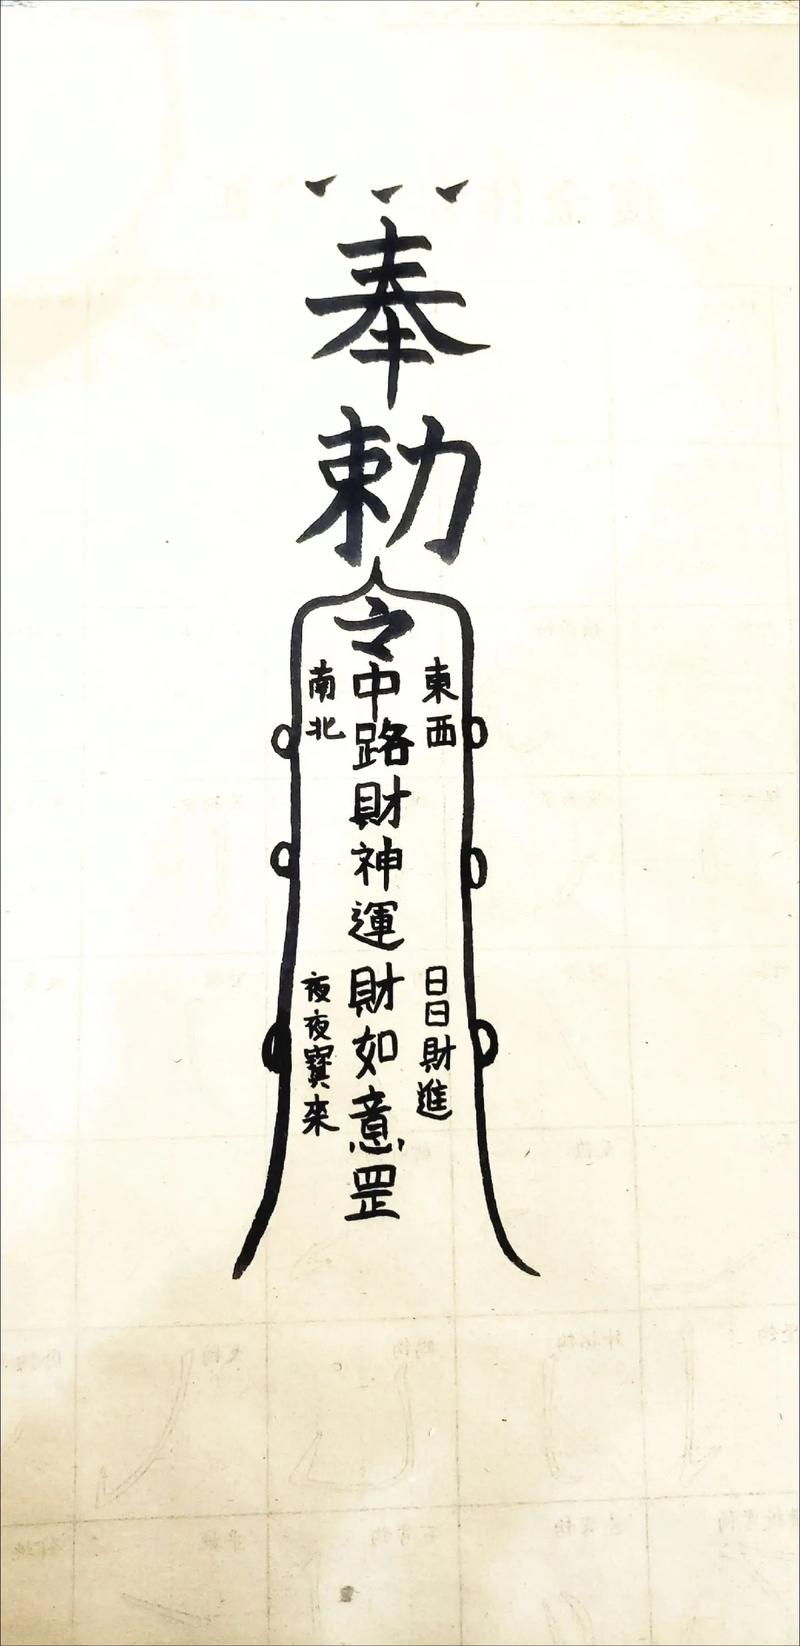 奉
勅
令
東西
南北
中路財神運財如意罡
日日財進
夜夜寶來